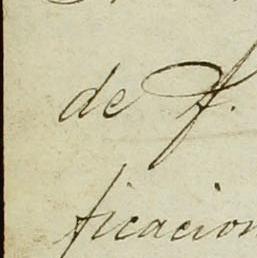 de f.
ficacion